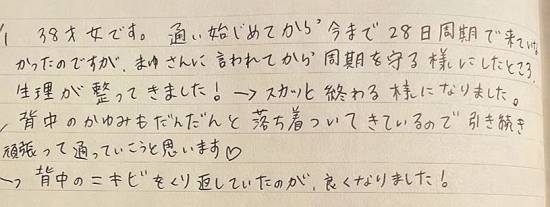 38才女です。通い始めてから今まで28日周期で来ていな
かったのですが、まゆさんに言われてから周期を守る様にしたところ、
生理が整ってきました！→スカッと終わる様になりました。
背中のかゆみもだんだんと落ち着ついてきているので引き続き
頑張って通っていこうと思います♡
→背中のニキビをくり返していたのが、良くなりました！